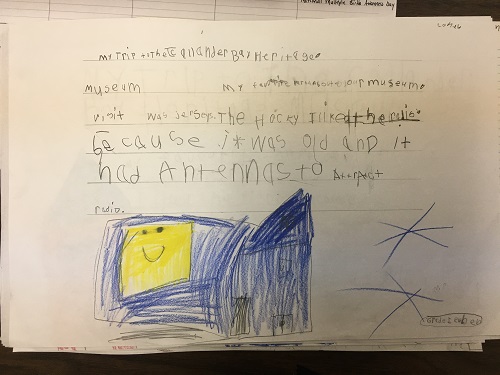 National Multiple Births Awareness Day
my trip to the Callander Bay Heritage
museum my favorite museum
visit was jerseys. The Hocky I liked the radio
because it was old and it
had Antennas to
radio.